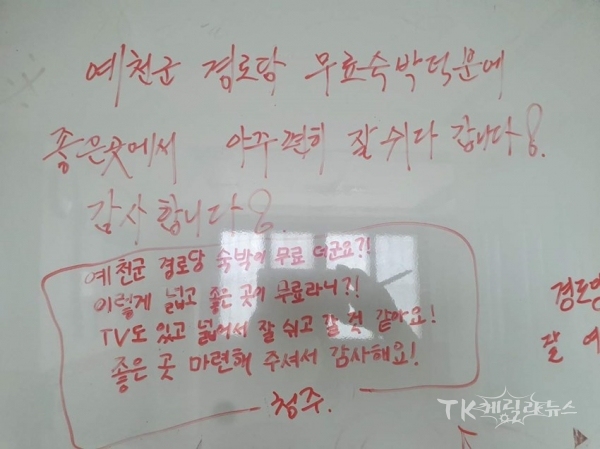 예천군 경로당 무료숙박덕분에
좋은곳에서 아주 편히 잘 쉬다 갑니다!
감사합니다!
예천군 경로당 숙박이 무료 더군요?!
이렇게 넓고 좋은 곳이 무료라니?!
TV도 있고 넓어서 잘 쉬고 갈 것 같아요!
좋은 곳 마련해 주셔서 감사해요!
청주.
경로당
잘
TK케림라뉴스